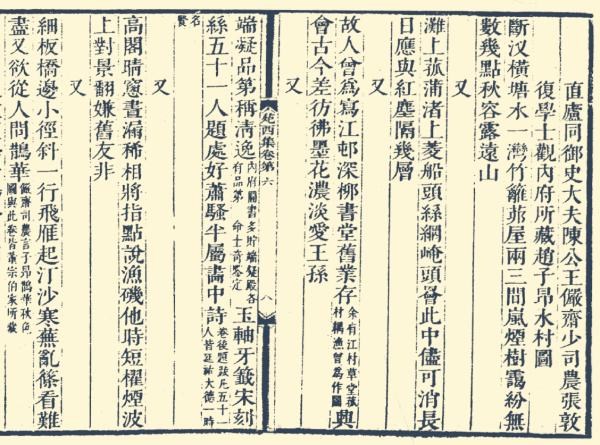 直廬同御史大夫陳公王儼齋少司農張敦
復學士觀內府所藏趙子昂水村圖
斷汊橫塘水一灣竹籬茆屋兩三間嵐煙樹靄紛無
數幾點秋容露遠山
又
灘上菰蒲渚上菱船頭絲網崦頭罾此中儘可消長
日應與紅塵隔幾層
又
故人曾為寫江邨深柳書堂舊業存余有江村草堂村耦漁曾為作圖興
會古今差彷彿墨花濃淡愛王孫
又
苑西集卷第六
八
端凝品第稱清逸內府圖書多貯端凝殿各有品第 命士奇鑒定玉軸牙籤宋刻
絲五十一人題處好蕭騷半屬畫中詩卷後題跋凡五十一人皆延祐大德一時
名賢
又
高閣晴窻晝漏稀相將指點說漁磯他時短櫂煙波
上對景翻嫌舊友非
又
細板橋邊小徑斜一行飛雁起汀沙寒蕪亂篠看難
盡又欲從人問鵲華儼齋司農言子昂鵲華秋色圖與此卷皆董宗伯家所藏